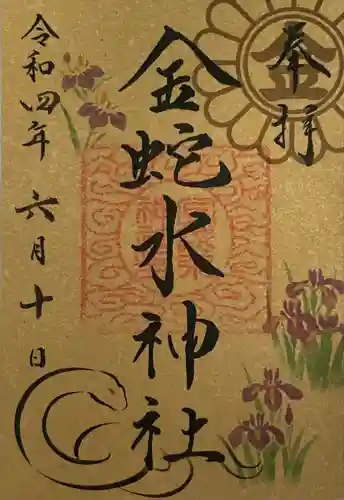 奉拝
金蛇水神社
令和四年 六月十日